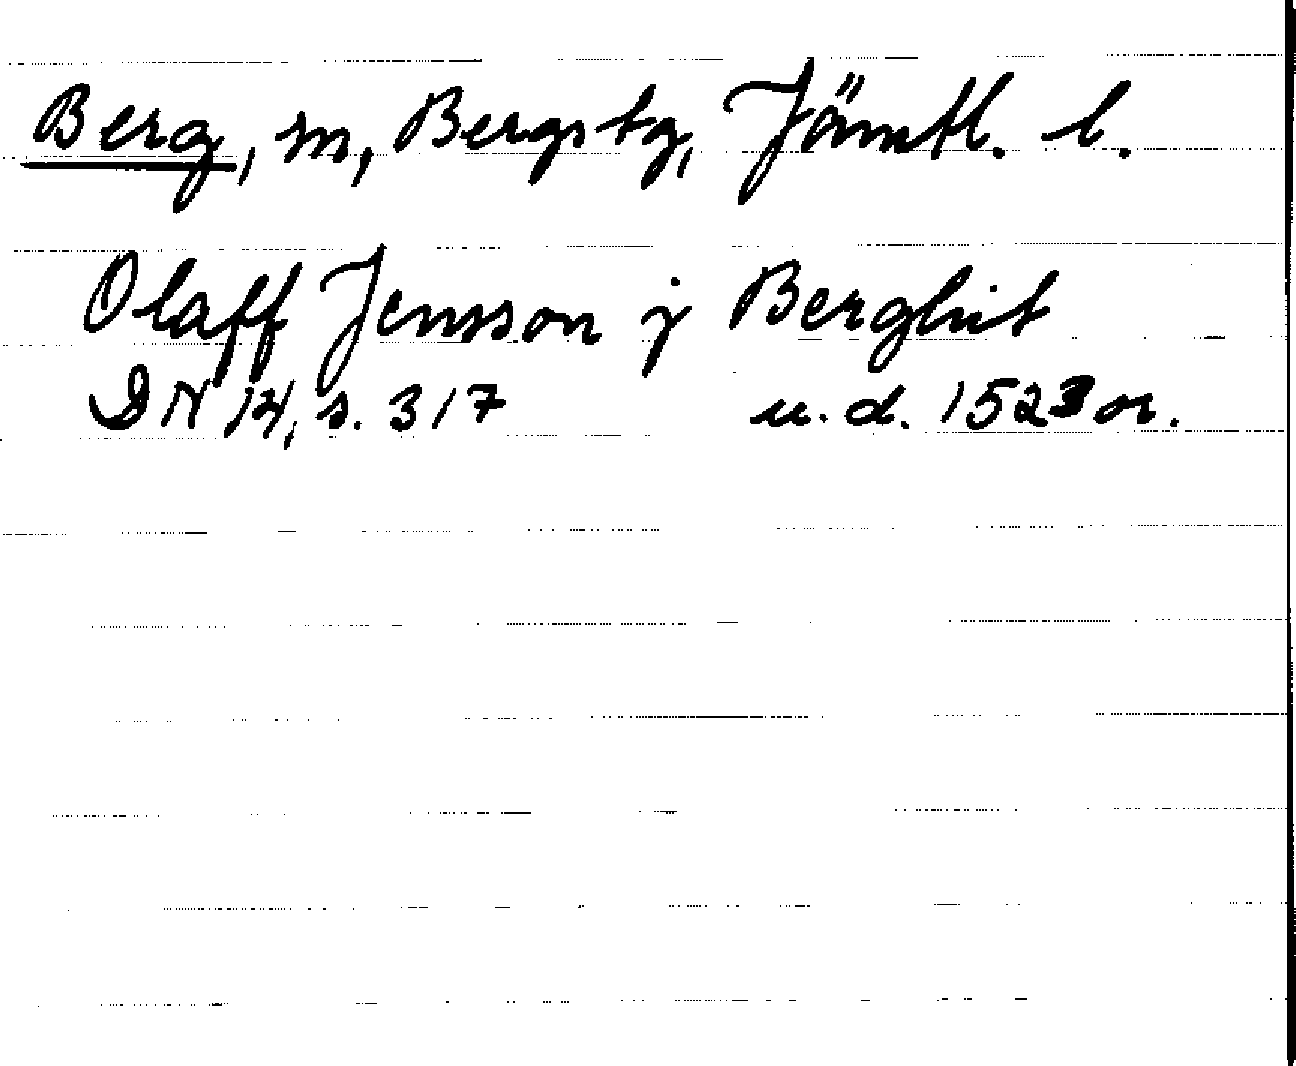 Berg, sn, Bergs tg, Jämtl. l.
Olaff Jensson j Berghit
DN 14, s. 317 u. d. 1523 or.